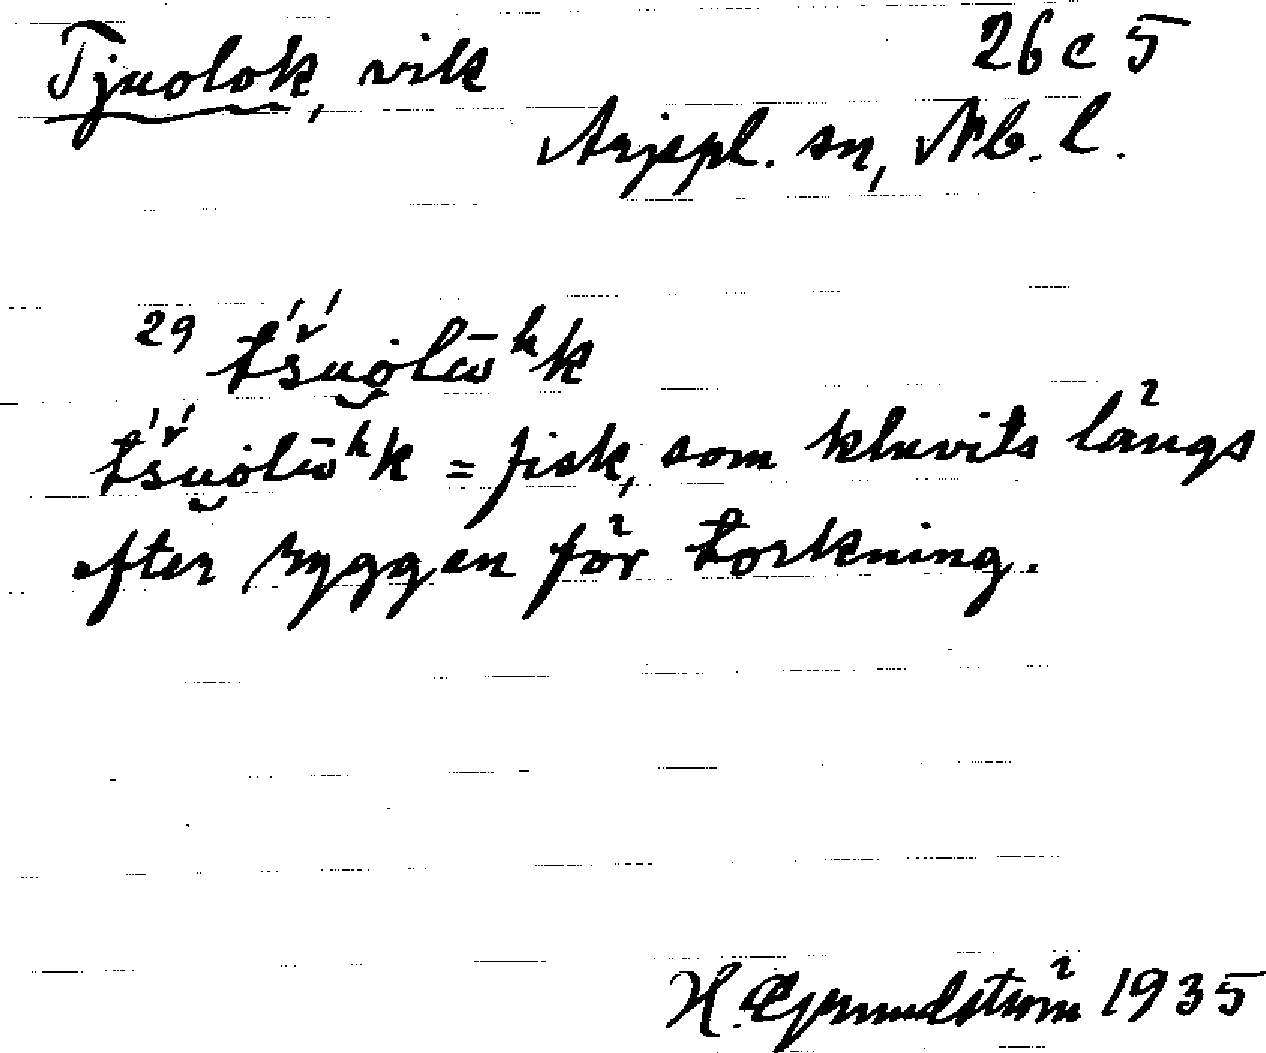 Tjuolok, vik 26 c 5
Arjepl. sn, Nb. l.
29 t́š́uo̯lω̄ʰk
t́š́uo̯lω̄ʰk = fisk, som kluvits längs
efter ryggen för torkning.
H. Grundström 1935